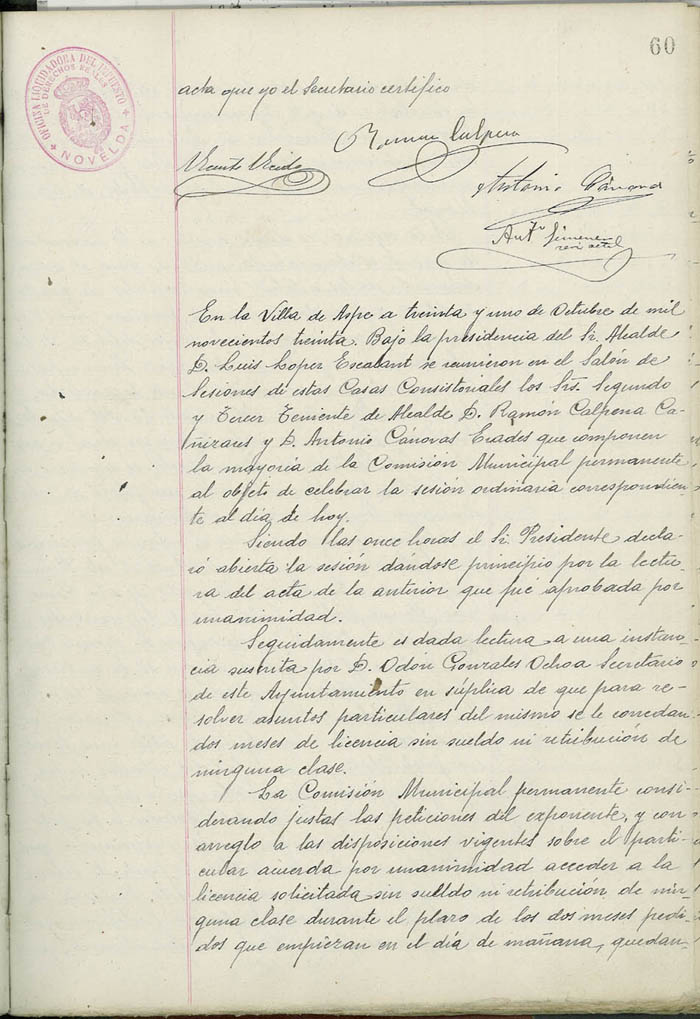 60
OFICINA LIQUIDADORA DEL IMPUESTO
DE DERECHOS REALES
NOVELDA
acta que yo el Secretario certifico
Ramon Calpena
Vicente
Antonio Cánovas
Antº Gimenez
En la Villa de Aspe a treinta y uno de Octubre de mil
novecientos treinta. Bajo la presidencia del Sr. Alcalde
D. Luis Lopez Escalant se reunieron en el Salón de
Sesiones de estas Casas Consistoriales los Srs. Segundo
y Tercer Teniente de Alcalde D. Ramón Calpena Ca-
ñizares y D. Antonio Cánovas Erades que componen
la mayoría de la Comisión Municipal permanente
al objeto de celebrar la sesión ordinaria correspondien
te al día de hoy.
Siendo las once horas el Sr. Presidente decla-
ró abierta la sesión dándose principio por la lectu-
ra del acta de la anterior que fué aprobada por
unanimidad.
Seguidamente es dada lectura a una instan-
cia suscrita por D. Odón Gonzales Ochoa Secretario
de este Ayuntamiento en súplica de que para re-
solver asuntos particulares del mismo se le concedan
dos meses de licencia sin sueldo ni retribución de
ninguna clase.
La Comisión Municipal permanente consi-
derando justas las peticiones del exponente, y con
arreglo a las disposiciones vigentes sobre el parti-
cular acuerda por unanimidad acceder a la
licencia solicitada sin sueldo ni retribución de nin-
guna clase durante el plazo de los dos meses pedi-
dos que empiezan en el día de mañana, quedan-